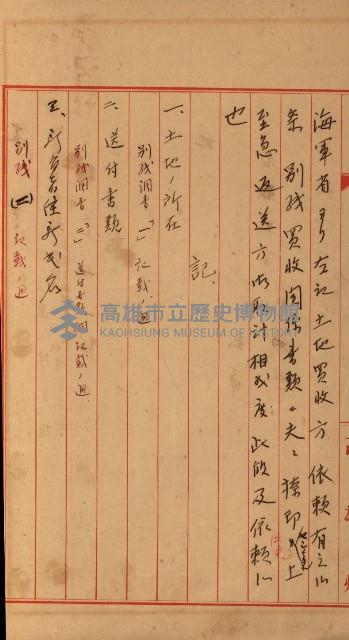 海軍省ヨリ左記土地買收方依賴有之候
条別紙買收関係書類夫々捺印ノ上
至急返送方御取計相成度此段及依賴候
也
記
一、土地ノ所在
別紙調書「一」記載ノ通
二、送付書類
別紙調書「二」送付書類欄記載ノ通
三、
別紙(二)記載ノ通
高雄市立歷史博物館
KAOHSIUNG MUSEUM OF HISTORY